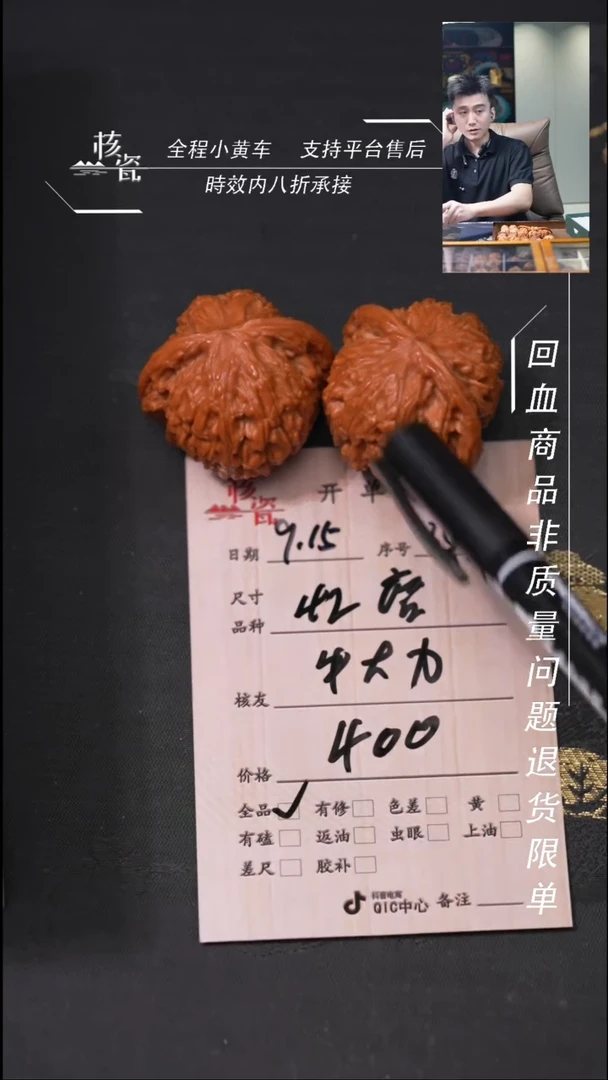 核瓷
全程小黄车 支持平台售后
時效内八折承接
回血商品非质量问题退货限单
核瓷
开单
日期 9.15 序号
尺寸
品种 42
核友 牛大力
价格 400
全品 ✓ 有修 色差 黄
有磕 返油 虫眼 上油
差尺 胶补
抖音电商
QIC中心 备注